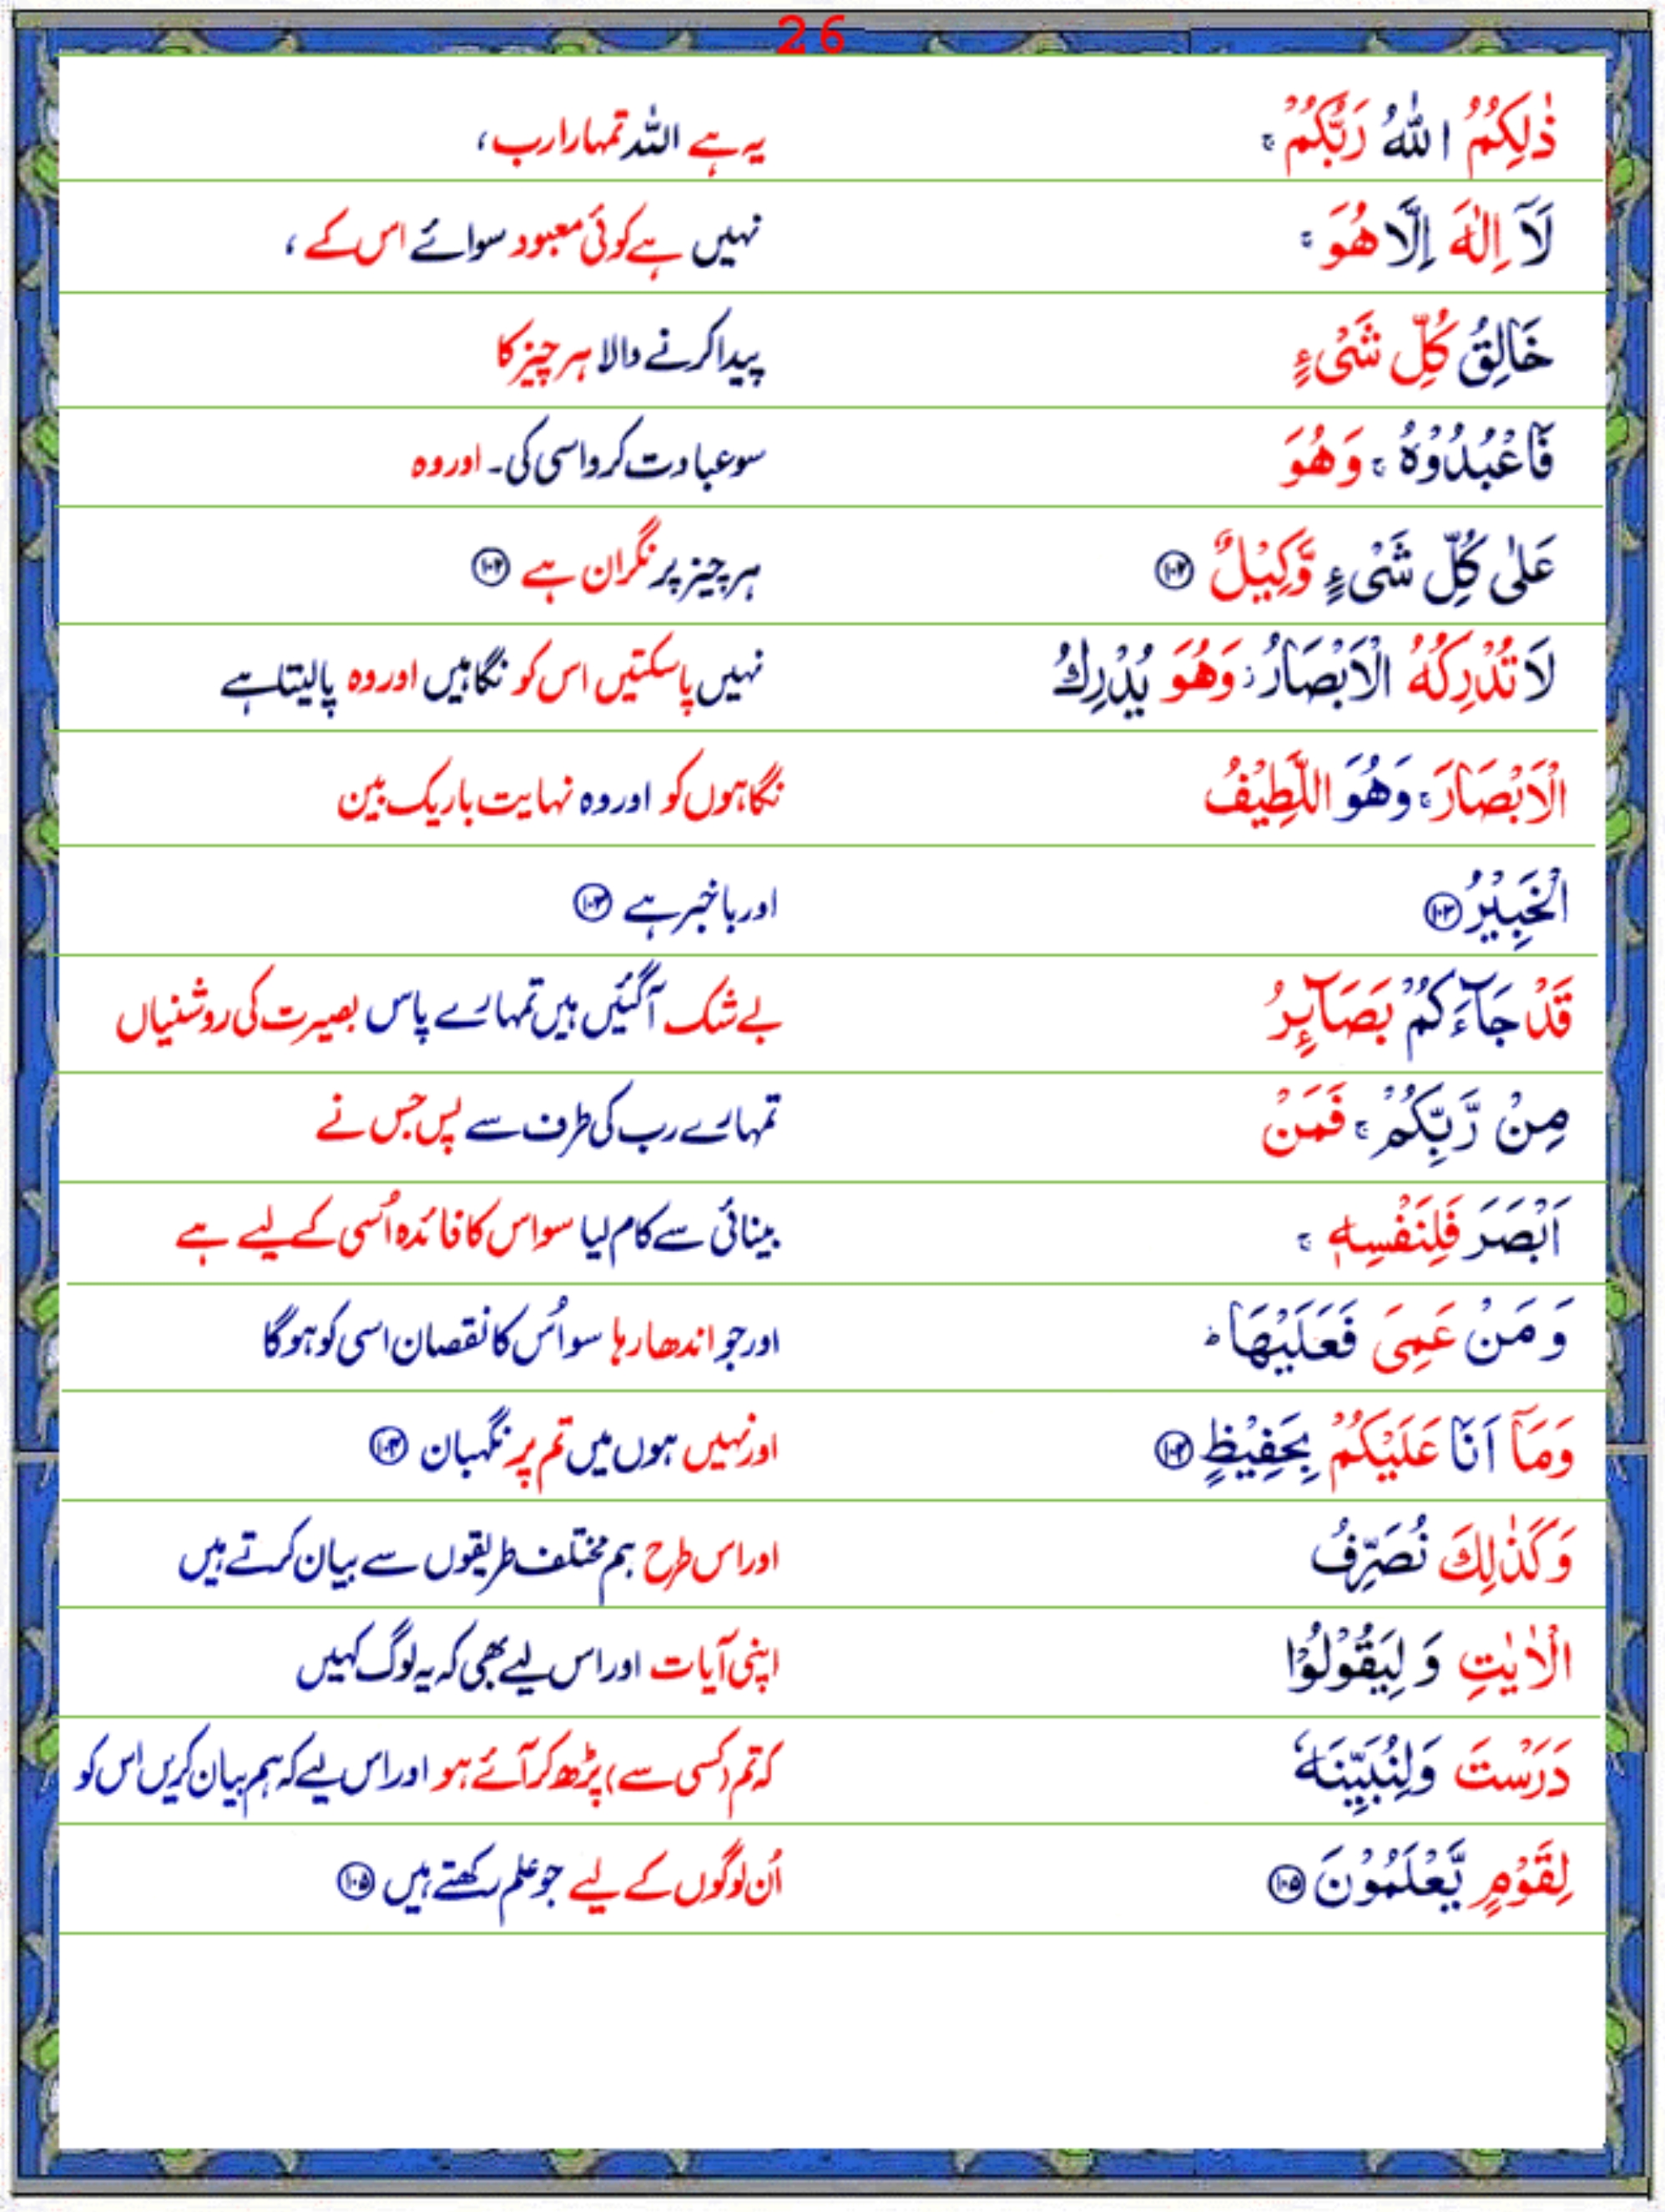 26
ذٰلِكُمُ اللّٰهُ رَبُّكُمْ ۚ یہ ہے اللہ تمہارا رب،
لَاۤ اِلٰهَ اِلَّا هُوَ ۚ نہیں ہے کوئی معبود سوائے اس کے،
خَالِقُ كُلِّ شَیْءٍ پیدا کرنے والا ہر چیز کا
فَاعْبُدُوْهُ ۚ وَهُوَ سو عبادت کرو اسی کی۔ اور وہ
عَلٰی كُلِّ شَیْءٍ وَّكِیْلٌ ۝۱۰۲ ہر چیز پر نگران ہے ۝۱۰۲
لَا تُدْرِكُهُ الْاَبْصَارُ ؗ وَهُوَ یُدْرِكُ نہیں پاسکتیں اس کو نگاہیں اور وہ پالیتا ہے
الْاَبْصَارَ ۚ وَهُوَ اللَّطِیْفُ نگاہوں کو اور وہ نہایت باریک بین
الْخَبِیْرُ ۝۱۰۳ اور باخبر ہے ۝۱۰۳
قَدْ جَآءَكُمْ بَصَآىِٕرُ بے شک آگئیں ہیں تمہارے پاس بصیرت کی روشنیاں
مِنْ رَّبِّكُمْ ۚ فَمَنْ تمہارے رب کی طرف سے پس جس نے
اَبْصَرَ فَلِنَفْسِهٖ ۚ بینائی سے کام لیا سو اس کا فائدہ اُسی کے لیے ہے
وَ مَنْ عَمِیَ فَعَلَیْهَا ؕ اور جو اندھا رہا سو اُس کا نقصان اسی کو ہوگا
وَمَاۤ اَنَا عَلَیْكُمْ بِحَفِیْظٍ ۝۱۰۴ اور نہیں ہوں میں تم پر نگہبان ۝۱۰۴
وَكَذٰلِكَ نُصَرِّفُ اور اس طرح ہم مختلف طریقوں سے بیان کرتے ہیں
الْاٰیٰتِ وَ لِیَقُوْلُوْا اپنی آیات اور اس لیے بھی کہ یہ لوگ کہیں
دَرَسْتَ وَلِنُبَیِّنَهٗ کہ تم (کسی سے) پڑھ کر آئے ہو اور اس لیے کہ ہم بیان کریں اس کو
لِقَوْمٍ یَّعْلَمُوْنَ ۝۱۰۵ اُن لوگوں کے لیے جو علم رکھتے ہیں ۝۱۰۵